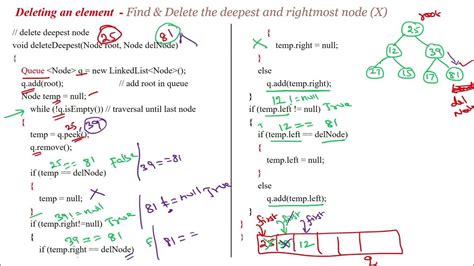 Deleting an element - Find & Delete the deepest and rightmost node (X)
// delete deepest node
25
81
void deleteDeepest(Node root, Node delNode)
{
Queue <Node> q = new LinkedList<Node>();
q.add(root); // add root in queue
Node temp = null;
while (!q.isEmpty()) // traversal until last node
{
25, 39
temp = q.peek();
q.remove();
25 == 81 False
39 == 81
if (temp == delNode)
{
temp = null;
}
39 != null True
81 != null True
if (temp.right!=null)
{
39 == 81 F
81 ==
if (temp.right == delNode)
X
{
temp.right = null;
}
else
q.add(temp.right);
}
12 != null
if (temp.left != null) True
{
12 == 81
if (temp.left == delNode)
{
temp.left = null;
}
else
q.add(temp.left);
}
first first first
25 39 12
q
root
25
12 39
27 15 17 81
del
Node